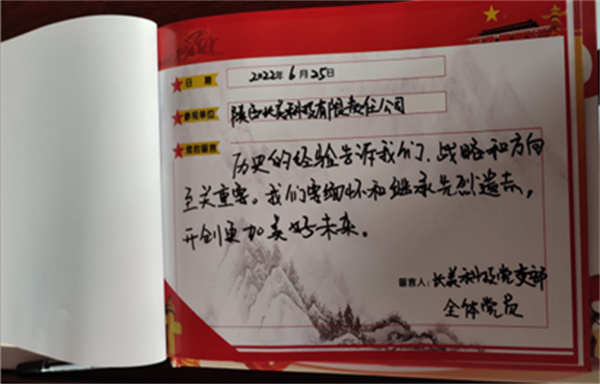 日期 2022年6月25日
参观单位 陕西长美科技有限责任公司
您的留言
历史的经验告诉我们,战略和方向
至关重要。我们要缅怀和继承先烈遗志,
开创更加美好未来。
留言人:长美科技党支部
全体党员